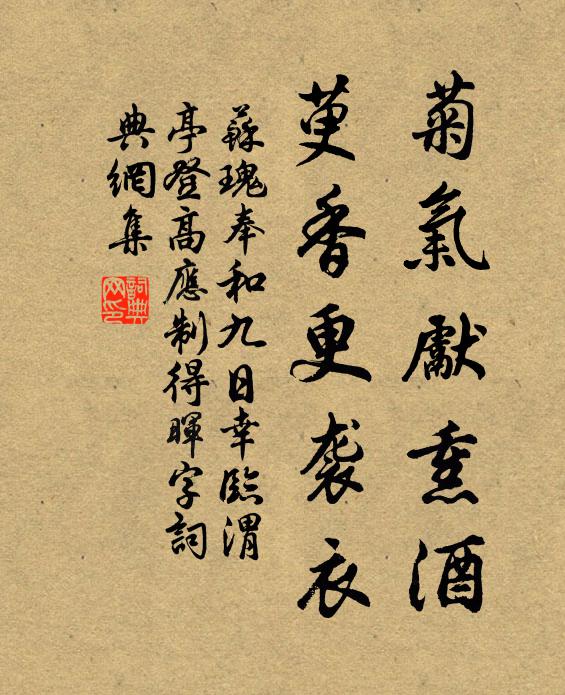 菊氣獻熏酒
萸香更襲衣
蘇瑰奉和九日幸臨渭
亭登高應制得暉字詞
典網集
詞典
网印